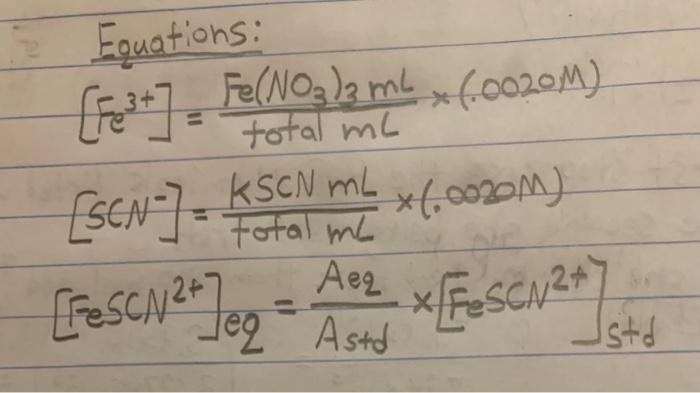 Equations:
[Fe³⁺] = Fe(NO₃)₃ mL / total mL × (.0020M)
[SCN⁻] = KSCN mL / total mL × (.0020M)
[FeSCN²⁺]eq = Aeq / Astd × [FeSCN²⁺]std